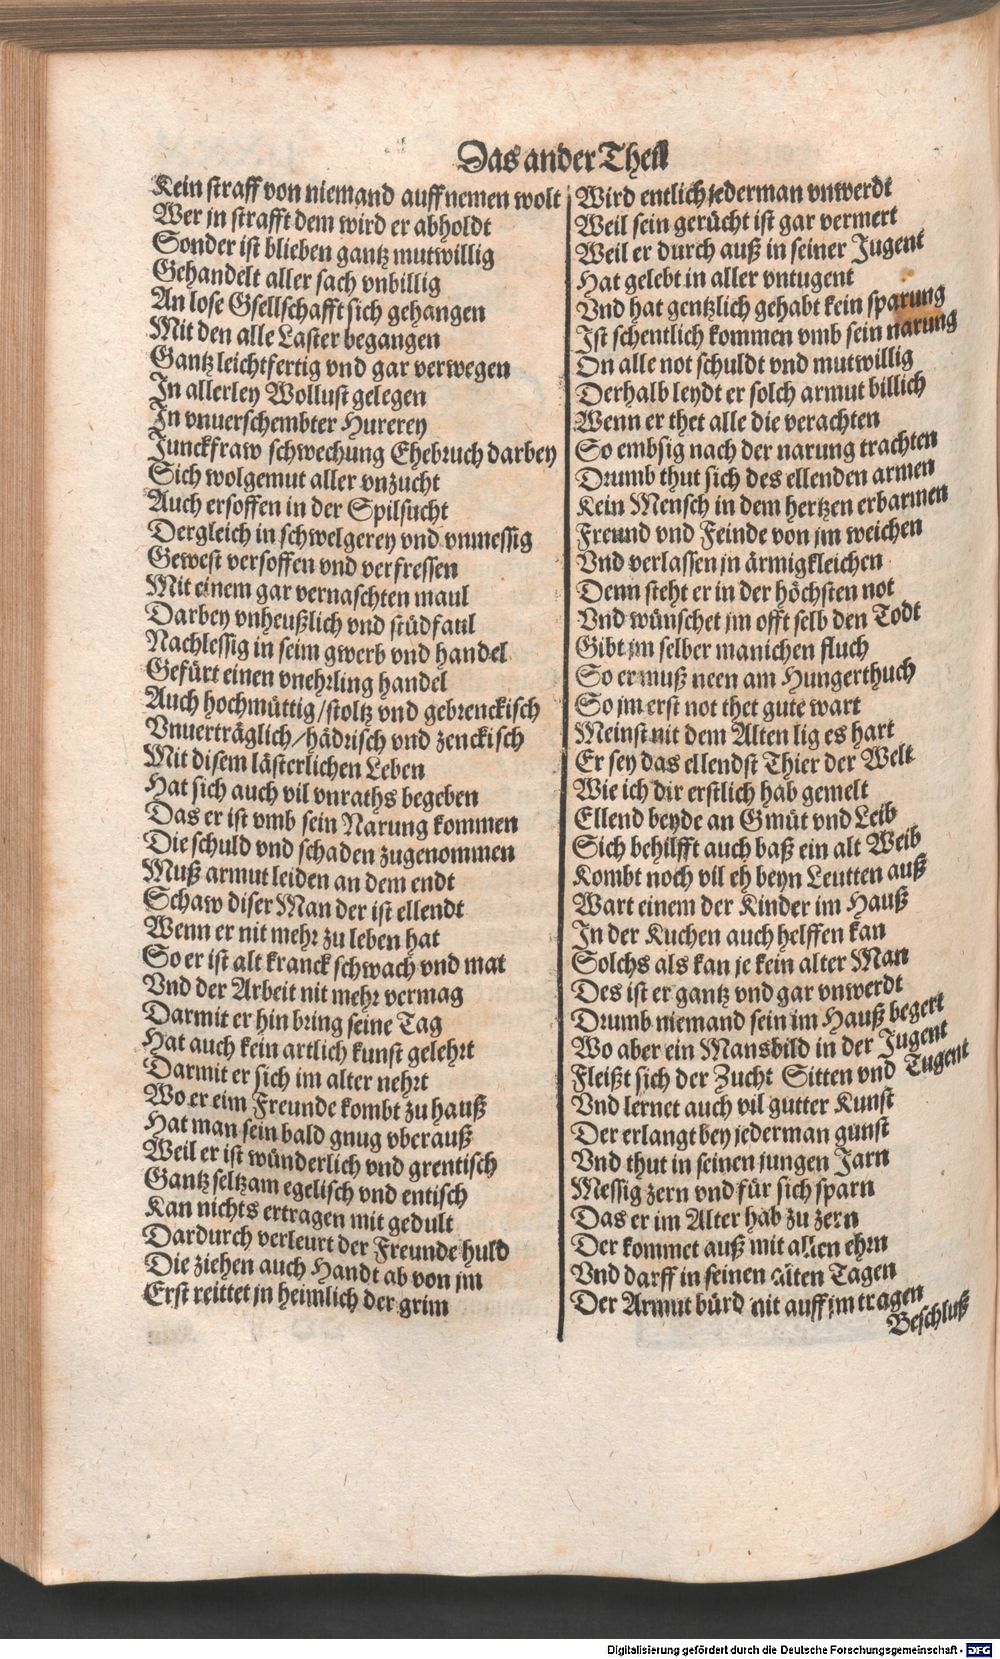 Das ander Theil
Kein straff von niemand auff nemen wolt
Wer jn strafft dem wird er abholdt
Sonder ist blieben gantz mutwillig
Gehandelt aller sach vnbillig
An lose Gsellschafft sich gehangen
Mit den alle Laster begangen
Gantz leichtfertig vnd gar verwegen
In allerley Wollust gelegen
In vnuerschembter Hurerey
Junckfraw schwechung Ehebruch darbey
Sich wolgemut aller vnzucht
Auch ersoffen in der Spilsucht
Dergleich in schwelgerey vnd vnmessig
Gewest versoffen vnd verfressen
Mit einem gar vernaschten maul
Darbey vnheußlich vnd stüdfaul
Nachlessig in seim gwerb vnd handel
Gefürt einen vnehrling handel
Auch hochmüttig/stoltz vnd gebrenckisch
Vnuerträglich/hädrisch vnd zenckisch
Mit disem lästerlichen Leben
Hat sich auch vil vnraths begeben
Das er ist vmb sein Narung kommen
Die schuld vnd schaden zugenommen
Muß armut leiden an dem endt
Schaw diser Man der ist ellendt
Wenn er nit mehr zu leben hat
So er ist alt kranck schwach vnd mat
Vnd der Arbeit nit mehr vermag
Darmit er hin bring seine Tag
Hat auch kein artlich kunst gelehrt
Darmit er sich im alter nehrt
Wo er eim Freunde kombt zu hauß
Hat man sein bald gnug vberauß
Weil er ist wünderlich vnd grentisch
Gantz seltzam egelisch vnd entisch
Kan nichts ertragen mit gedult
Dardurch verleurt der Freunde huld
Die ziehen auch Handt ab von jm
Erst reittet jn heimlich der grim
Wird entlich jederman vnwerdt
Weil sein gerücht ist gar vermert
Weil er durch auß in seiner Jugent
Hat gelebt in aller vntugent
Vnd hat gentzlich gehabt kein sparung
Ist schentlich kommen vmb sein narung
On alle not schuldt vnd mutwillig
Derhalb leydt er solch armut billich
Wenn er thet alle die verachten
So embsig nach der narung trachten
Drumb thut sich des ellenden armen
Kein Mensch in dem hertzen erbarmen
Freund vnd Feinde von jm weichen
Vnd verlassen jn ärmigkleichen
Denn steht er in der höchsten not
Vnd wünschet jm offt selb den Todt
Gibt jm selber manichen fluch
So er muß neen am Hungerthuch
So jm erst not thet gute wart
Meinst nit dem Alten lig es hart
Er sey das ellendst Thier der Welt
Wie ich dir erstlich hab gemelt
Ellend beyde an Gmüt vnd Leib
Sich behilfft auch baß ein alt Weib
Kombt noch vil eh beyn Leutten auß
Wart einem der Kinder im Hauß
In der Kuchen auch helffen kan
Solchs als kan je kein alter Man
Des ist er gantz vnd gar vnwerdt
Drumb niemand sein im Hauß begert
Wo aber ein Mansbild in der Jugent
Fleißt sich der Zucht Sitten vnd Tugent
Vnd lernet auch vil gutter Kunst
Der erlangt bey jederman gunst
Vnd thut in seinen jungen Jarn
Messig zern vnd für sich sparn
Das er im Alter hab zu zern
Der kommet auß mit allen ehrn
Vnd darff in seinen alten Tagen
Der Armut bürd nit auff jm tragen
Beschluß
Digitalisierung gefördert durch die Deutsche Forschungsgemeinschaft - DFG